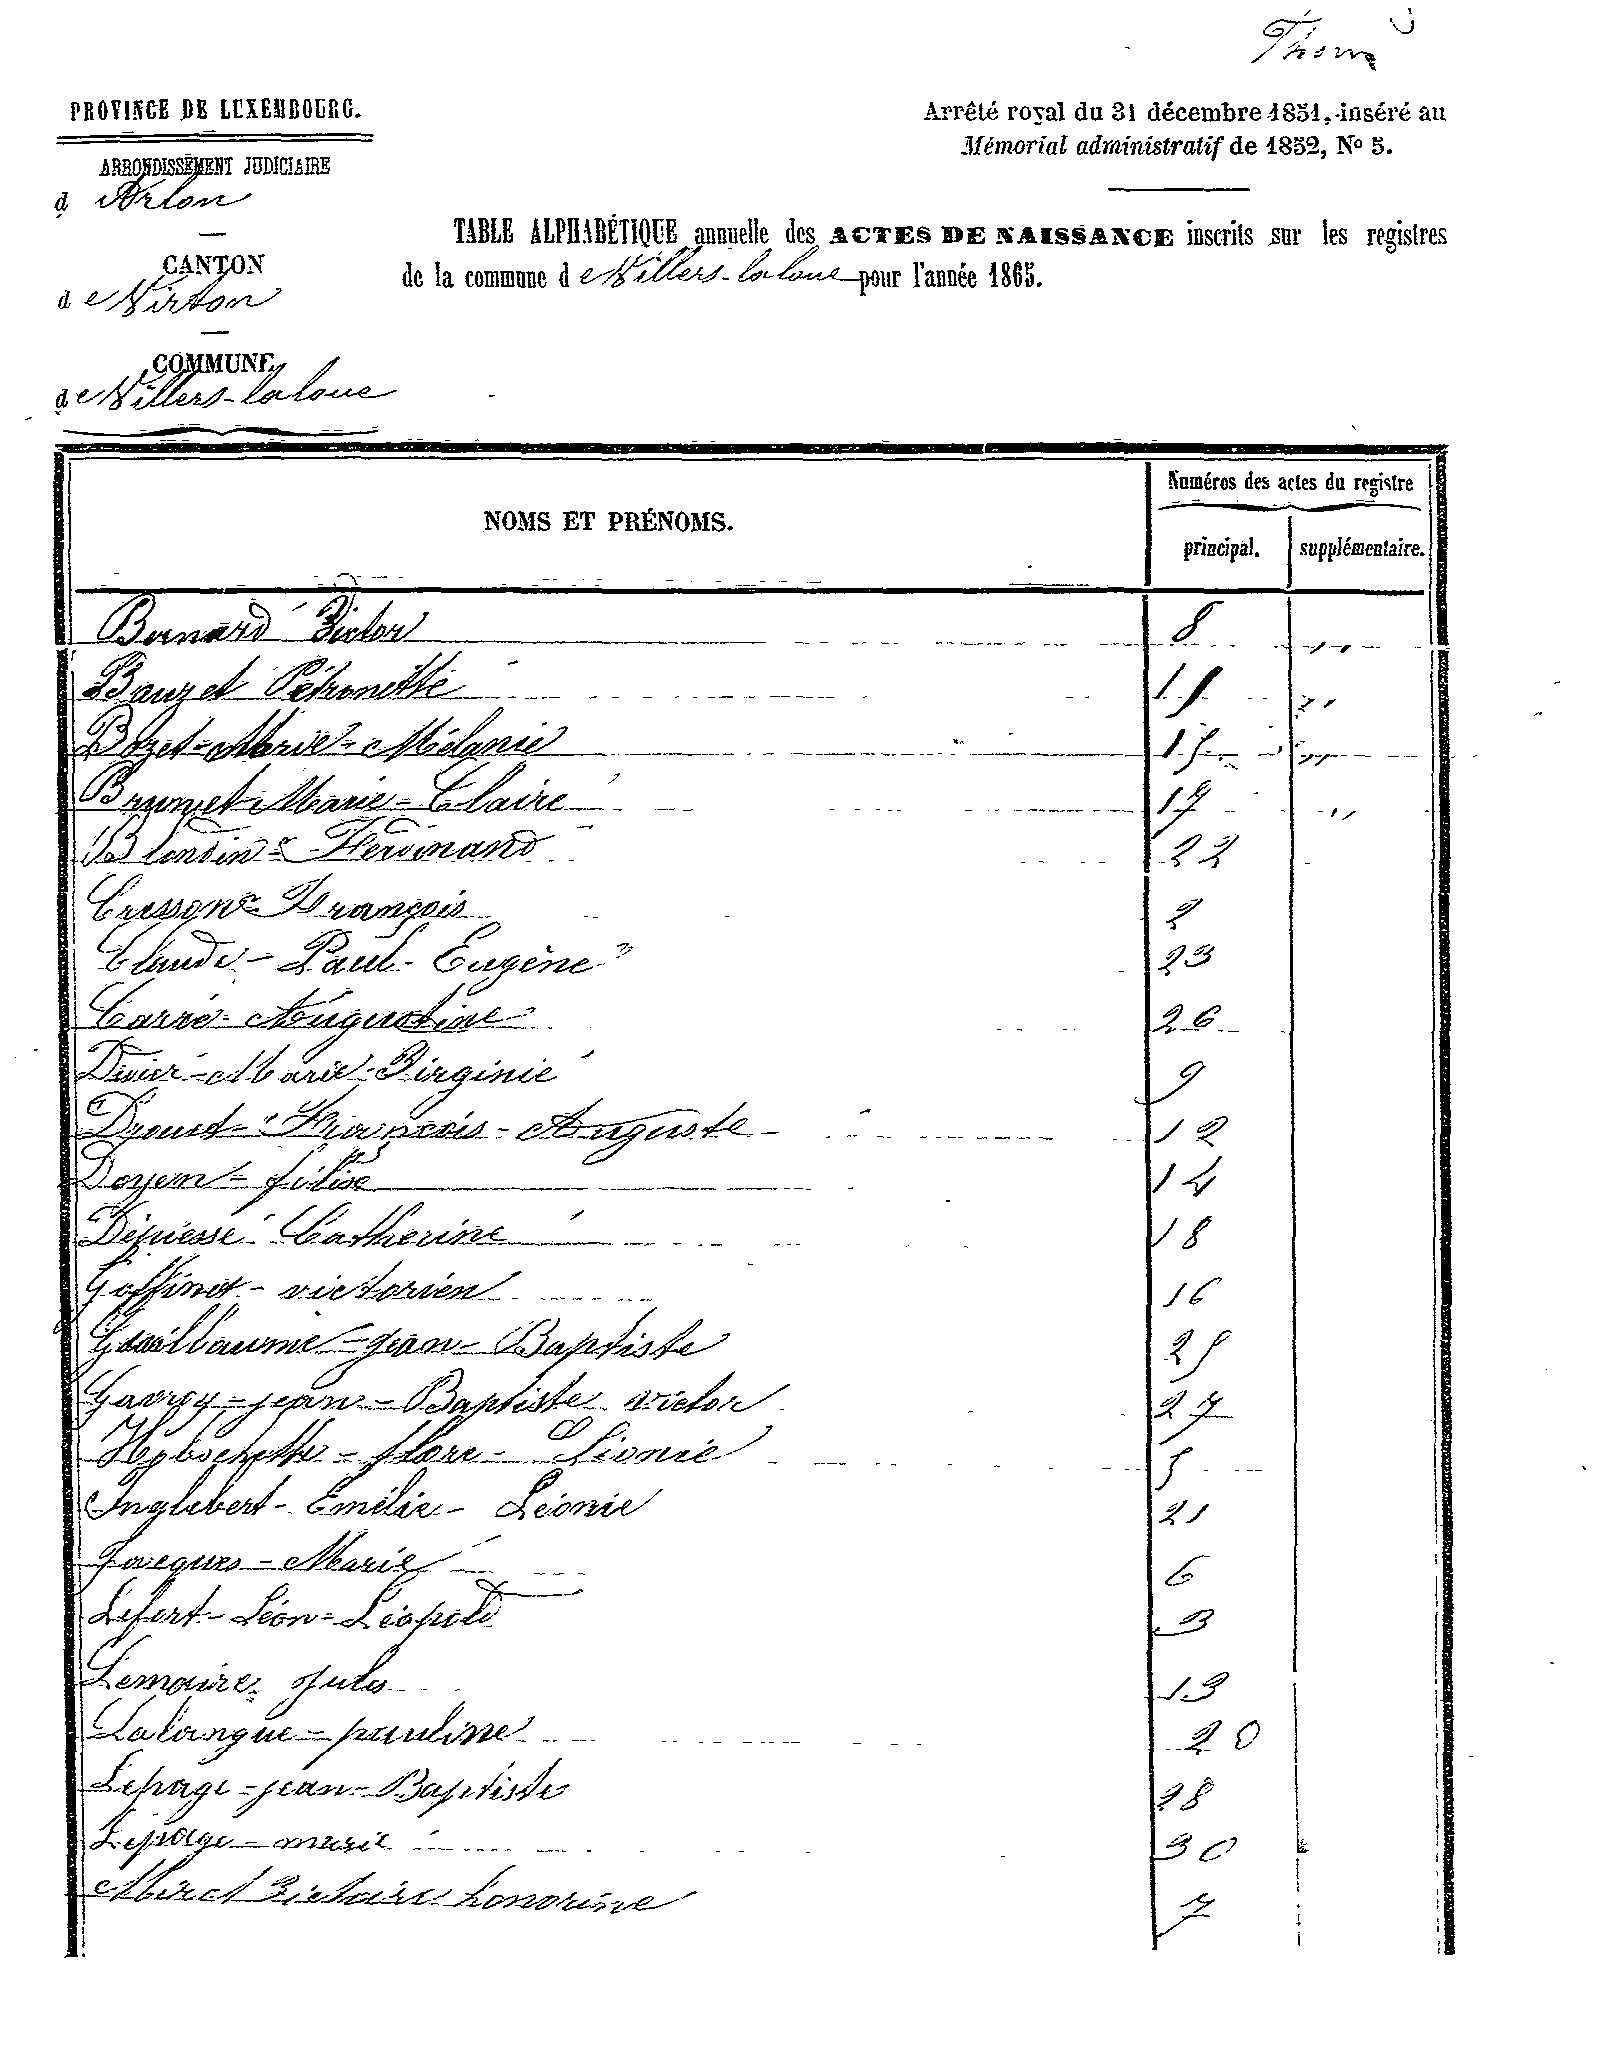 PROVINCE DE LUXEMBOURG.
ARRONDISSEMENT JUDICIAIRE
d'Arlon
CANTON
de Virton
COMMUNE
de Villers-laloue
Arrêté royal du 31 décembre 1851, inséré au
Mémorial administratif de 1852, No 5.
TABLE ALPHABÉTIQUE annuelle des ACTES DE NAISSANCE inscrits sur les registres
de la commune de Villers-laloue pour l'année 1865.
NOMS ET PRÉNOMS.
Numéros des actes du registre
principal. supplémentaire.
Bernard Victor 8 ,,
Pétronette ,,
Bozet-Marie-Mélanie 15 ,,
Brunet Marie-Claire 17 ,,
Blondin Ferdinand 22
François 2
Claude-Paul-Eugène 23
Carré-Augustine 26
Marie-Virginie 9
Drouet-François-Auguste 12
Doyen-félise 14
Catherine 18
Goffinet-victorien 16
Guillaume-jean-Baptiste 25
Gavroy-jean-Baptiste victor 27
flore-Léonie 5
Inglebert-Emélie-Léonie 21
Jacques-Marie 6
Lefort-Léon-Léopold 3
Lemaire Jules 13
Lalangue-pauline 20
Lepage-jean-Baptiste 28
Lepage-marie 30
Victoire honorine 7